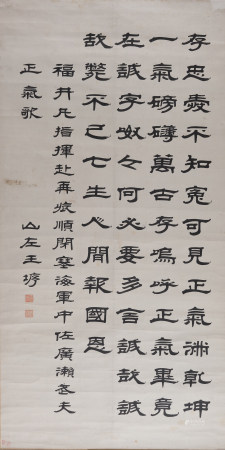 存忠愛不知冤可見正氣滿乾坤
一氣磅礴萬古存嗚呼正氣畢竟
在誠字呶々何必要多言誠哉誠
哉斃不已七生人間報國恩
福井丸指揮赴再旅順閉塞海軍中佐廣瀨武夫
正氣歌
山左王垿